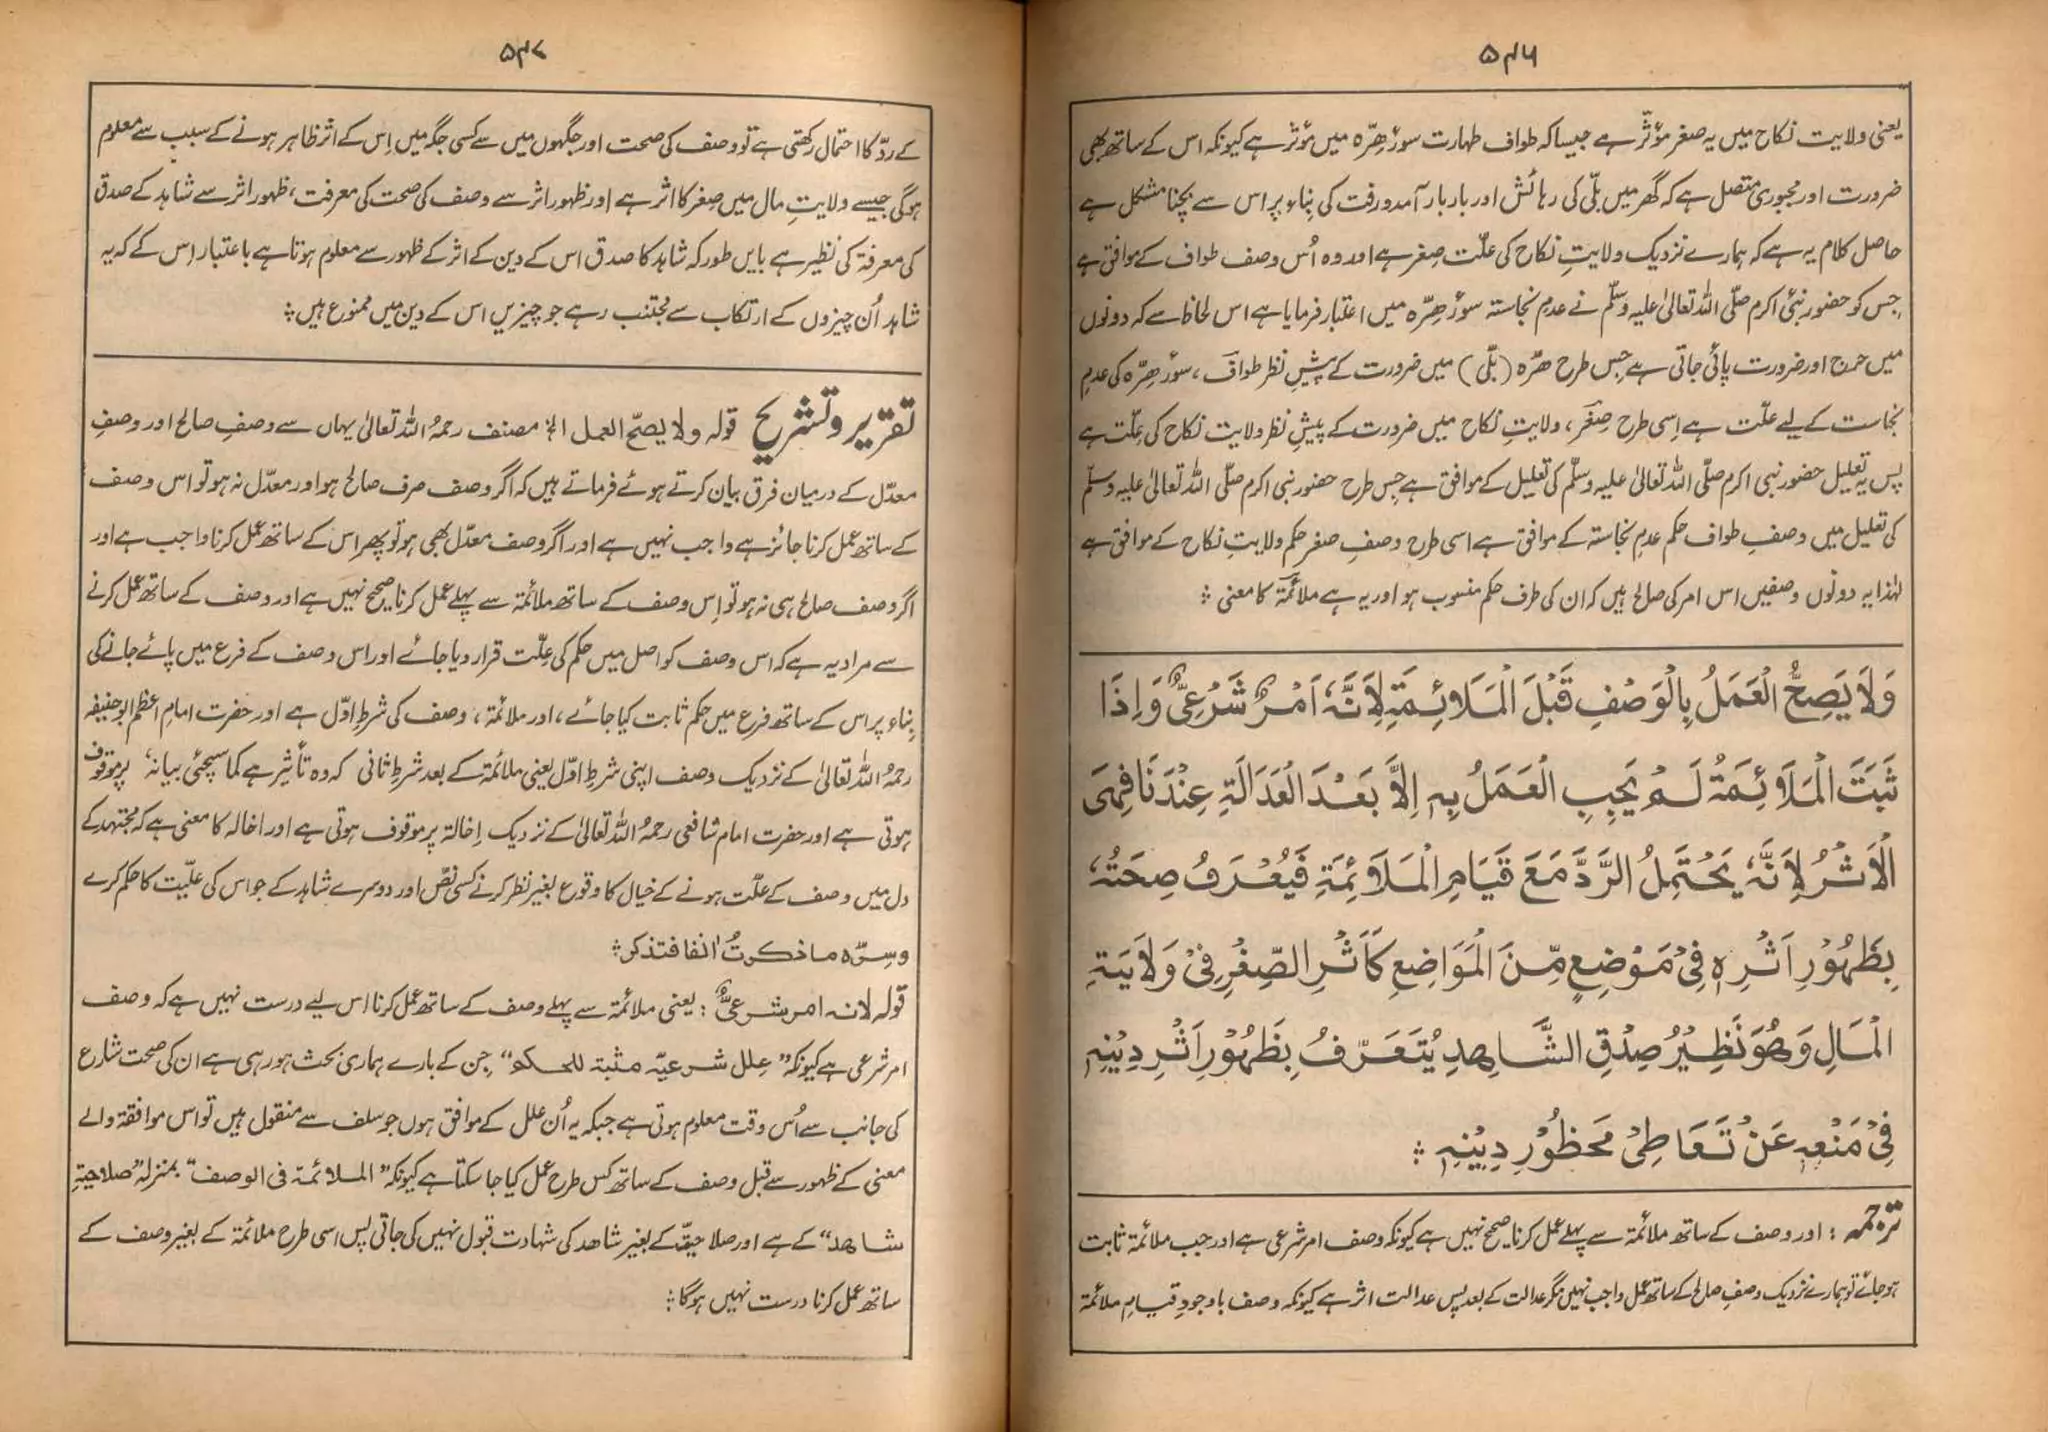 ۵۴۶
یعنی ولایت نکاح میں یہ صغر مؤثّر ہے جیسا کہ طواف طہارت سورِ ھِرّہ میں مؤثر ہے کیونکہ اس کے ساتھ بھی
ضرورت اور مجبوری متصل ہے کہ گھر میں بلّی کی رہائش اور بار بار آمد و رفت کی بِناء پر اس سے بچنا مشکل ہے
حاصل کلام یہ ہے کہ ہمارے نزدیک ولایتِ نکاح کی علّت صِغر ہے اور وہ اُس وصف طواف کے موافق ہے
جِس کو حضور نبیٔ اکرم صلّی اللہ تعالیٰ علیہ وسلّم نے عدمِ نجاستہ سورٔ ھِرّہ میں اعتبار فرمایا ہے اس لحاظ سے کہ دونوں
میں حرج اور ضرورت پائی جاتی ہے جِس طرح ھرّہ (بلّی) میں ضرورت کے پیشِ نظر طواف، سورٔ ھِرّہ کی عدمِ
نجاست کے لیے علّت ہے اِسی طرح صِغر، ولایتِ نکاح میں ضرورت کے پیشِ نظر ولایت نکاح کی عِلّت ہے
پس یہ تعلیل حضور نبی اکرم صلّی اللہ تعالیٰ علیہ وسلّم کی تعلیل کے موافق ہے جس طرح حضور نبی اکرم صلّی اللہ تعالیٰ علیہ وسلّم
کی تعلیل میں وصفِ طواف حکم عدمِ نجاستہ کے موافق ہے اسی طرح وصفِ صغر حکم ولایتِ نکاح کے موافق ہے
لہٰذا یہ دونوں وصفیں اس امر کی صالح ہیں کہ ان کی طرف حکم منسوب ہو اور یہ ہے ملائمۃ کا معنی ؛
وَلَا يَصِحُّ الْعَمَلُ بِالْوَصْفِ قَبْلَ الْمَلَائِمَةِ لِاَنَّهٗ اَمْرٌ شَرْعِيٌّ وَاِذَا
ثَبَتَ الْمَلَائِمَةُ لَمْ يَجِبِ الْعَمَلُ بِهٖ اِلَّا بَعْدَ الْعَدَالَةِ عِنْدَنَا فَهِىَ
الْاَثْرُ لِاَنَّهٗ يَحْتَمِلُ الرَّدَّ مَعَ قَيَامِ الْمَلَائِمَةِ فَيُعْرَفُ صِحَتُهٗ
بِظُهُوْرِ اَثْرِهٖ فِىْ مَوْضِعٍ مِّنَ الْمَوَاضِعِ كَاَثْرِ الصِّغْرِ فِىْ وَلَايَةِ
الْمَالِ وَهُوَ نَظِيْرُ صِدْقِ الشَّاهِدِ يُتَعَرَّفُ بِظُهُوْرِ اَثْرِ دِيْنِهٖ
فِىْ مَنْعِهٖ عَنْ تَعَاطِىْ مَحْظُوْرِ دِيْنِهٖ ؛
ترجمہ : اور وصف کے ساتھ ملائمۃ سے پہلے عمل کرنا صحیح نہیں ہے کیونکہ وصف امر شرعی ہے اور جب ملائمۃ ثابت
ہو جائے تو ہمارے نزدیک وصفِ صالح کے ساتھ عمل واجب نہیں مگر عدالت کے بعد پس عدالت اثر ہے کیونکہ وصف باوجودِ قیامِ ملائمۃ
۵۴۷
کے ردّ کا احتمال رکھتی ہے تو وصف کی صحت اور جگہوں میں سے کسی جگہ میں اِس کے اثر ظاہر ہونے کے سبب سے معلوم
ہوگی جیسے ولایتِ مال میں صِغر کا اثر ہے اور ظہورِ اثر سے وصف کی صحت کی معرفت، ظہور اثر سے شاہد کے صدق
کی معرفۃ کی نظیر ہے بایں طور کہ شاہد کا صدق اس کے دین کے اثر کے ظہور سے معلوم ہوتا ہے باعتبار اِس کے کہ یہ
شاہد اُن چیزوں کے ارتکاب سے مجتنب رہے جو چیزیں اس کے دین میں ممنوع ہیں ؛
تقریر و تشریح قولہ ولا یصحّ العمل الخ مصنف رحمہُ اللہ تعالیٰ یہاں سے وصفِ صالح اور وصفِ
معدّل کے درمیان فرق بیان کرتے ہوئے فرماتے ہیں کہ اگر وصف صرف صالح ہو اور معدّل نہ ہو تو اس وصف
کے ساتھ عمل کرنا جائز ہے واجب نہیں ہے اور اگر وصف معدّل بھی ہو تو پھر اس کے ساتھ عمل کرنا واجب ہے اور
اگر وصف صالح ہی نہ ہو تو اِس وصف کے ساتھ ملائمۃ سے پہلے عمل کرنا صحیح نہیں ہے اور وصف کے ساتھ عمل کرنے
سے مراد یہ ہے کہ اس وصف کو اصل میں حکم کی عِلّت قرار دیا جائے اور اس وصف کے فرع میں پائے جانے کی
بِناء پر اس کے ساتھ فرع میں حکم ثابت کیا جائے، اور ملائمۃ، وصف کی شرطِ اوّل ہے اور حضرت امامِ اعظم ابو حنیفہ
رحمہُ اللہ تعالیٰ کے نزدیک وصف اپنی شرطِ اوّل یعنی ملائمۃ کے بعد شرطِ ثانی کہ وہ تأثیر ہے کما سیجئی بیانہٗ پر موقوف
ہوتی ہے اور حضرت امام شافعی رحمہُ اللہ تعالیٰ کے نزدیک اِخالۃ پر موقوف ہوتی ہے اور اخالہ کا معنی ہے کہ مجتہد کے
دل میں وصف کے علّت ہونے کے خیال کا وقوع بغیر نظر کرنے کسی نصّ اور دوسرے شاہد کے جو اس کی علّیت کا حکم کرے
وسِرّہ ما ذکرتُ اٰنفا فتذکر ؛
قولہ لانہ امر شرعیٌّ : یعنی ملائمۃ سے پہلے وصف کے ساتھ عمل کرنا اس لیے درست نہیں ہے کہ وصف
امر شرعی ہے کیونکہ ”عِلل شرعیّہ مثبتۃ للحکم“ جِن کے بارے ہماری بحث ہو رہی ہے ان کی صحت شارع
کی جانب سے اُس وقت معلوم ہوتی ہے جبکہ یہ اُن علل کے موافق ہوں جو سلف سے منقول ہیں تو اس موافقۃ والے
معنی کے ظہور سے قبل وصف کے ساتھ کس طرح عمل کیا جا سکتا ہے کیونکہ ”الملائمۃ فی الوصف“ بمنزلہ ”صلاحیۃِ
شاھد“ کے ہے اور صلاحیۃ کے بغیر شاھد کی شہادت قبول نہیں کی جاتی پس اسی طرح ملائمۃ کے بغیر وصف کے
ساتھ عمل کرنا درست نہیں ہوگا ؛